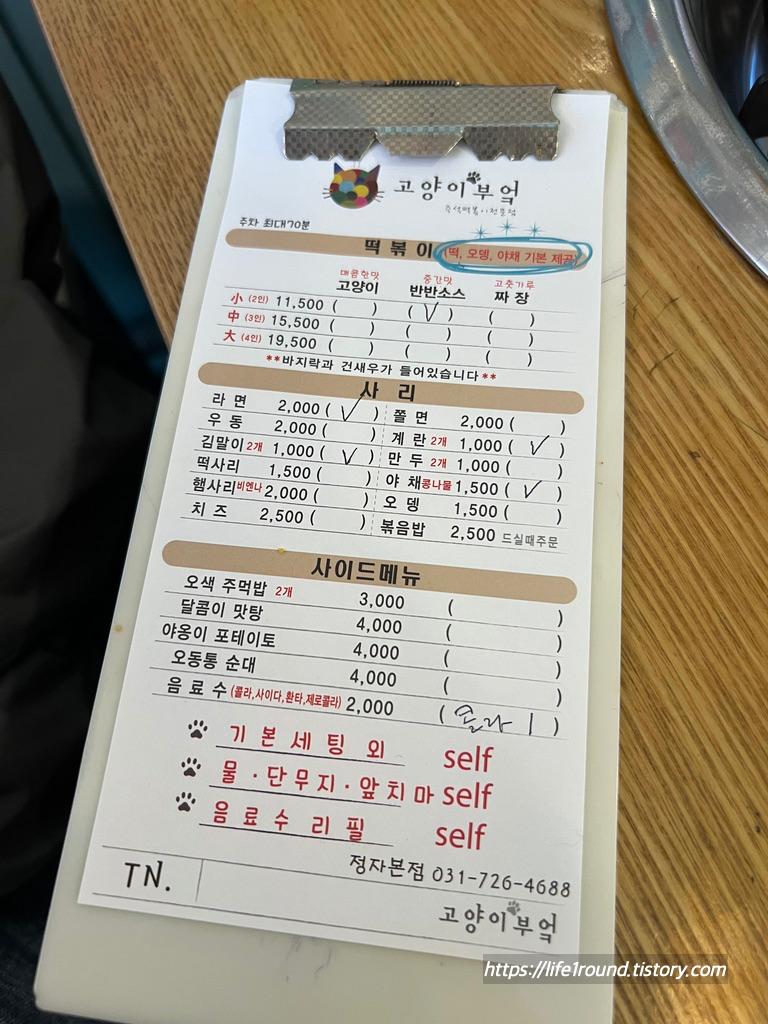 고양이부엌
즉석떡볶이전문점
주차 최대70분
떡 볶 이 (떡, 오뎅, 야채 기본 제공)
매콤한맛 중간맛 고춧가루
고양이 반반소스 짜 장
小 (2인) 11,500 ( ) ( √ ) ( )
中 (3인) 15,500 ( ) ( ) ( )
大 (4인) 19,500 ( ) ( ) ( )
**바지락과 건새우가 들어있습니다**
사 리
라 면 2,000 ( √ ) 쫄 면 2,000 ( )
우 동 2,000 ( ) 계 란 2개 1,000 ( √ )
김말이 2개 1,000 ( √ ) 만 두 2개 1,000 ( )
떡사리 1,500 ( ) 야 채 콩나물 1,500 ( √ )
햄사리 비엔나 2,000 ( ) 오 뎅 1,500 ( )
치 즈 2,500 ( ) 볶음밥 2,500 드실때주문
사이드메뉴
오색 주먹밥 2개 3,000 ( )
달콤이 맛탕 4,000 ( )
야옹이 포테이토 4,000 ( )
오동통 순대 4,000 ( )
음 료 수 (콜라,사이다,환타,제로콜라) 2,000 ( 콜라 1 )
기 본 세 팅 외 self
물 · 단 무 지 · 앞 치 마 self
음 료 수 리 필 self
정자본점 031-726-4688
TN.
고양이부엌
https://life1round.tistory.com